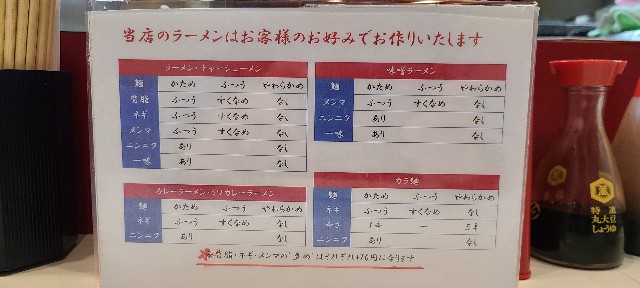 当店のラーメンはお客様のお好みでお作りいたします
ラーメン・チャーシューメン
麺 かため ふつう やわらかめ
背脂 ふつう すくなめ なし
ネギ ふつう すくなめ なし
メンマ ふつう すくなめ なし
ニンニク あり なし
一味 あり なし
味噌ラーメン
麺 かため ふつう やわらかめ
メンマ ふつう すくなめ なし
ニンニク あり なし
一味 あり なし
カレーラーメン・
カレーラーメン
麺 かため ふつう やわらかめ
ネギ ふつう すくなめ なし
ニンニク あり なし
カラ麺
麺 かため ふつう やわらかめ
ネギ ふつう すくなめ なし
辛さ
ニンニク あり なし
※背脂・ネギ・メンマの"多め"はそれぞれ+76円になります
特選
丸大豆
しょうゆ